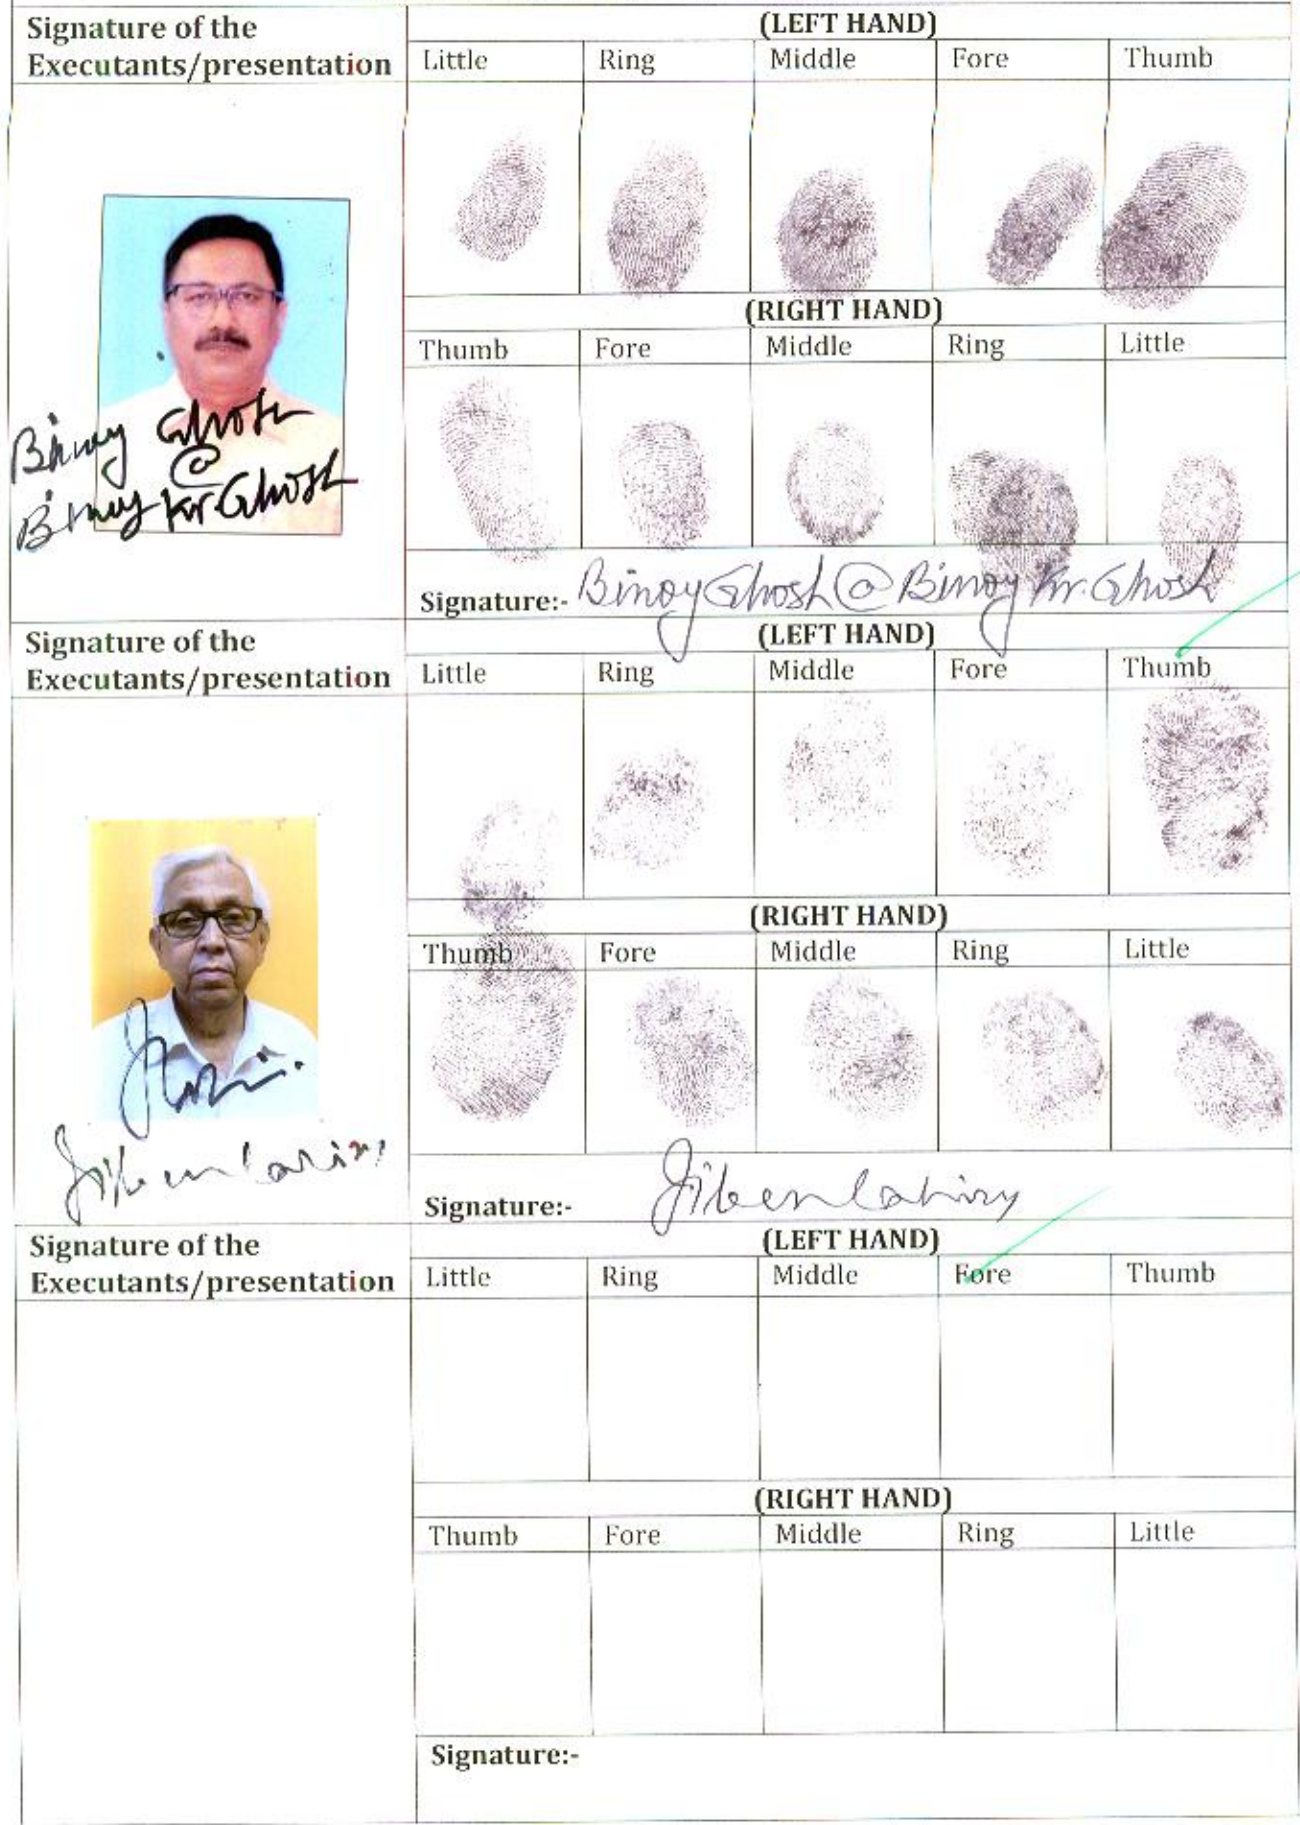 Signature of the
Executants/presentation
(LEFT HAND)
Little Ring Middle Fore Thumb
(RIGHT HAND)
Thumb Fore Middle Ring Little
Binoy Ghosh
@
Binoy Kr Ghosh
Signature:- Binoy Ghosh @ Binoy Kr. Ghosh
Signature of the
Executants/presentation
(LEFT HAND)
Little Ring Middle Fore Thumb
(RIGHT HAND)
Thumb Fore Middle Ring Little
Signature:- Jiben Lahiry
Signature of the
Executants/presentation
(LEFT HAND)
Little Ring Middle Fore Thumb
(RIGHT HAND)
Thumb Fore Middle Ring Little
Signature:-